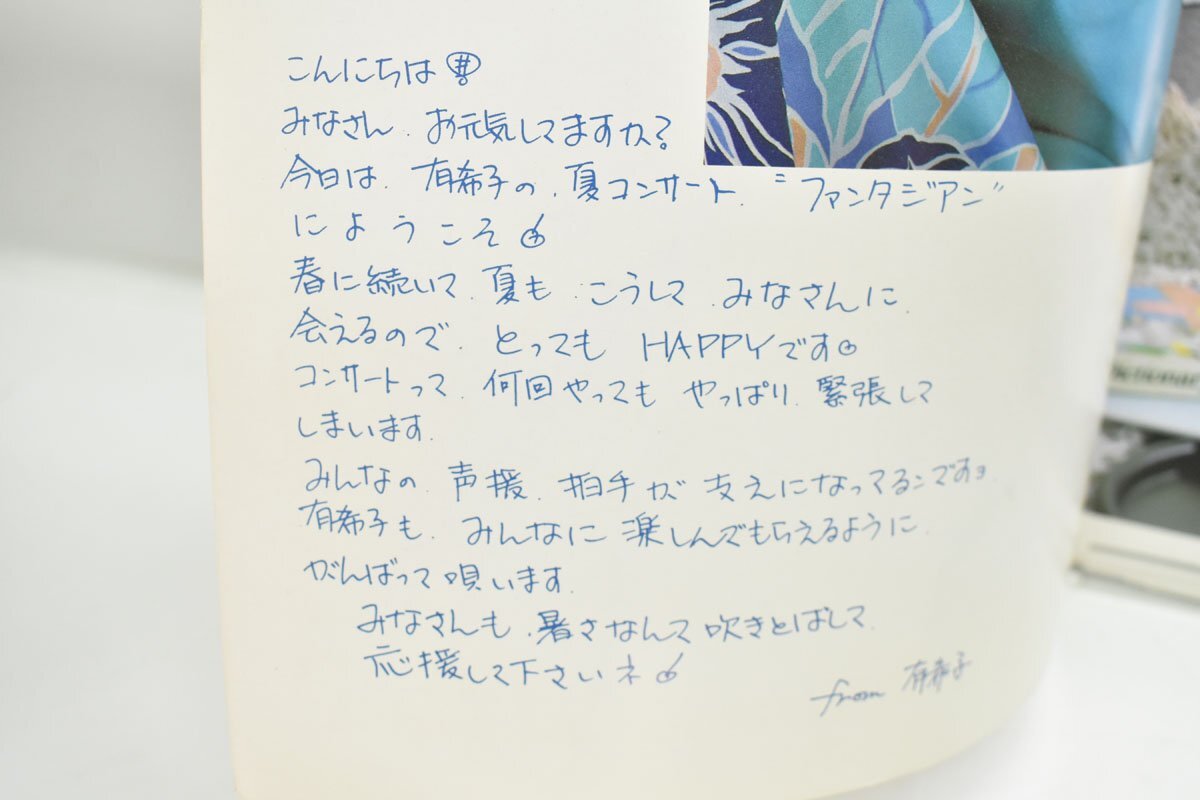 こんにちは
みなさん、お元気してますか?
今日は、有希子の、夏コンサート、“ファンタジアン”
にようこそ
春に続いて、夏も、こうして、みなさんに、
会えるので、とってもHAPPYです。
コンサートって、何回やっても やっぱり、緊張して
しまいます。
みんなの、声援、拍手が 支えになってるンですョ。
有希子も、みんなに 楽しんでもらえるように、
がんばって 唄います。
みなさんも、暑さなんて 吹きとばして、
応援して下さいネ
from 有希子